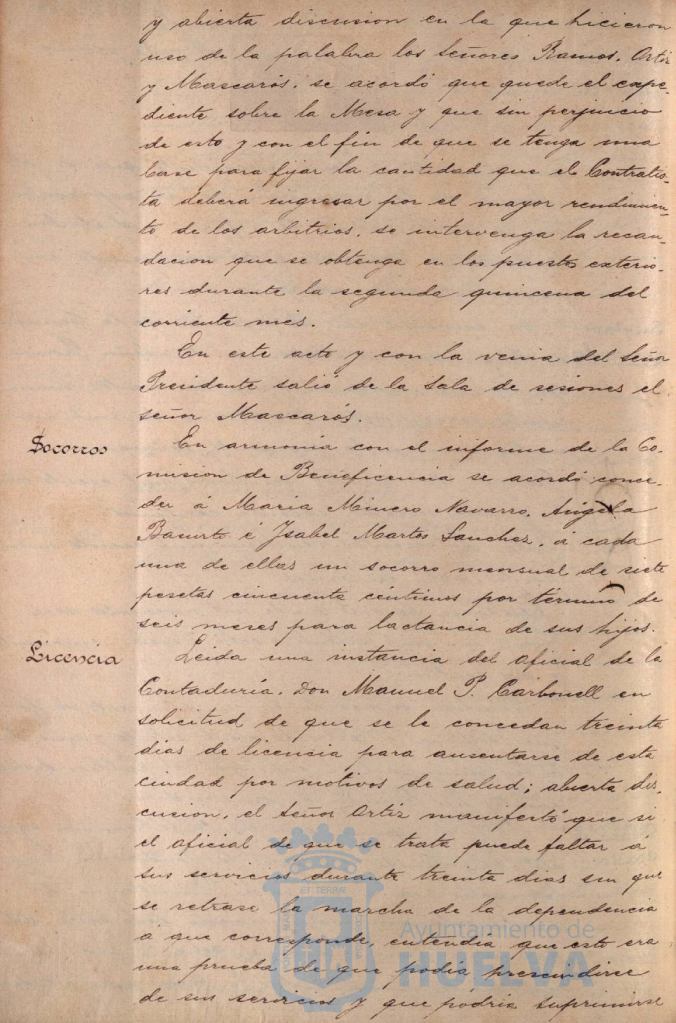 y abierta discusion en la que hicieron
uso de la palabra los Señores Ramos, Ortiz
y Mascarós, se acordó que quede el expe-
diente sobre la Mesa y que sin perjuicio
de esto y con el fin de que se tenga una
base para fijar la cantidad que el Contratis-
ta deberá ingresar por el mayor rendimien-
to de los arbitrios, se intervenga la recau-
dacion que se obtenga en los puestos exterio-
res durante la segunda quincena del
corriente mes.
En este acto y con la venia del Señor
Presidente salió de la Sala de sesiones el
señor Mascarós.
Socorros
En armonía con el informe de la Co-
mision de Beneficencia se acordó conce-
der á Maria Minero Navarro, Angela
é Isabel Martos Sanchez, á cada
una de ellas un socorro mensual de siete
pesetas cincuenta céntimos por termino de
seis meses para lactancia de sus hijos.
Licencia
Leida una instancia del oficial de la
Contaduría, Don Manuel P. Carbonell en
solicitud de que se le concedan treinta
dias de licencia para ausentarse de esta
ciudad por motivos de salud; abierta dis-
cusion, el Señor Ortiz manifestó que si
el oficial de que se trata puede faltar á
sus servicios durante treinta dias sin que
se retrase la marcha de la dependencia
á que corresponde, entendia que esto era
una prueba de que podia prescindirse
de sus servicios y que podria suprimirse
Ayuntamiento de
HUELVA